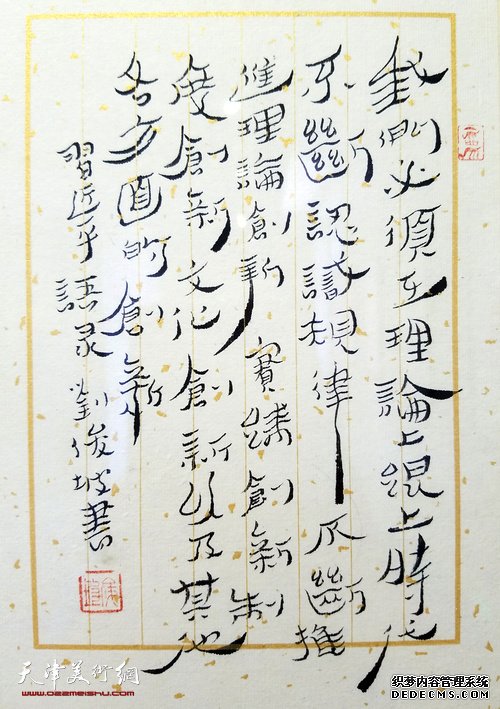 我們必須在理論上跟上時代
不斷認識規律 不斷推
進理論創新 實踐創新 制
度創新 文化創新以及其他
各方面的創新
習近平語录 劉俊坡書
天津美術網
www.022meishu.com
织梦内容管理系统
DEDECMS.COM